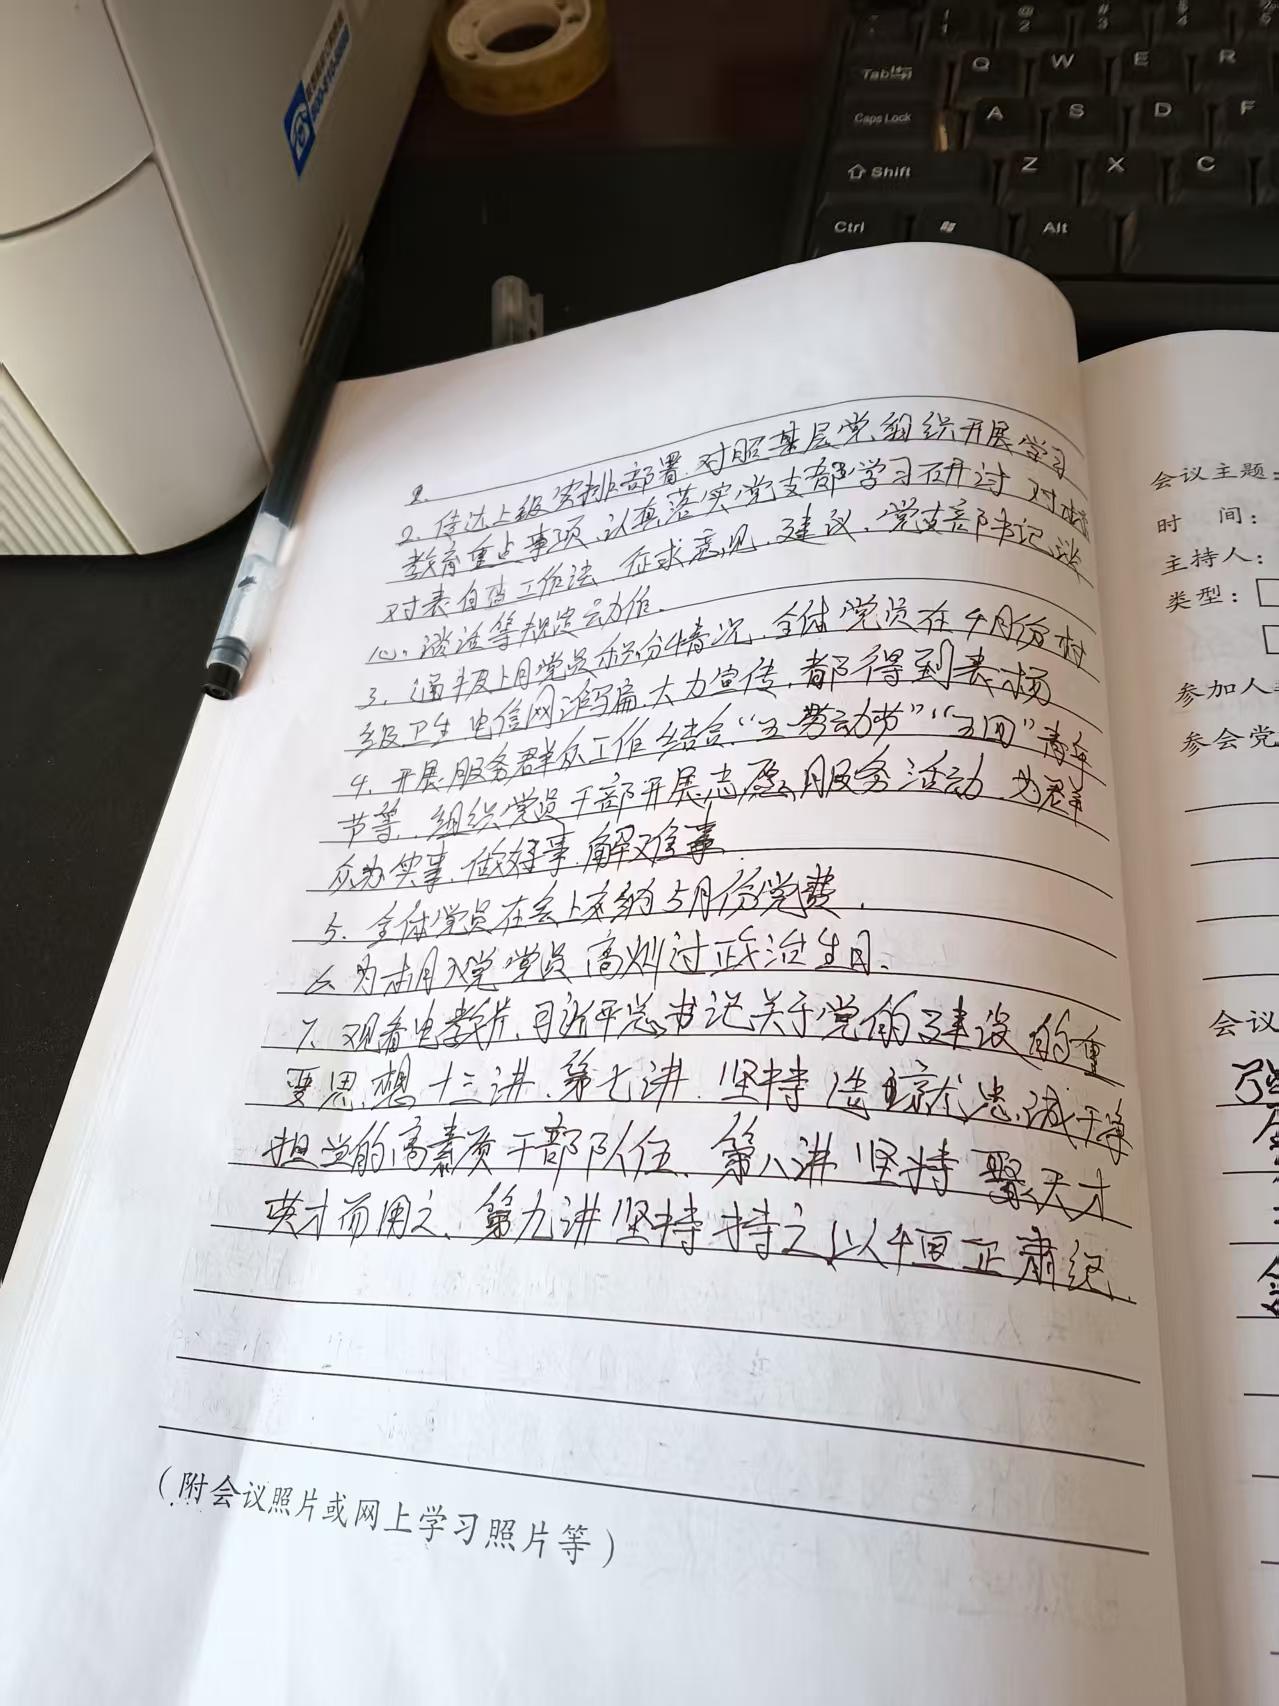 2.传达上级安排部署,对照基层党组织开展学习
教育重点事项,认真落实党支部学习研讨 对
对表 工作法 征求意见、建议,党支部书记谈
心谈话等规定动作。
3.通报上月党员积分情况,全体党员在4月份村
级卫生 电信网 大力宣传,都得到表扬
4.开展服务群众工作结合“五一劳动节”“五四”青年
节等,组织党员干部开展志愿服务活动,为群
众办实事,做好事,解难事
5.全体党员在会上交纳5月份党费.
6.为本月入党党员 过政治生日.
7.观看电教片,习近平总书记关于党的建设的重
要思想十三讲,第七讲.坚持 忠诚干净
担当的高素质干部队伍、第八讲坚持聚天下
英才而用之、第九讲坚持持之以恒正肃纪.
(附会议照片或网上学习照片等)
会议主题:
时 间:
主持人:
类型:
参加人
参会党
会议
Tab
Q W E R
Caps Lock
A S D F
Shift
Z X C
Ctrl
Alt